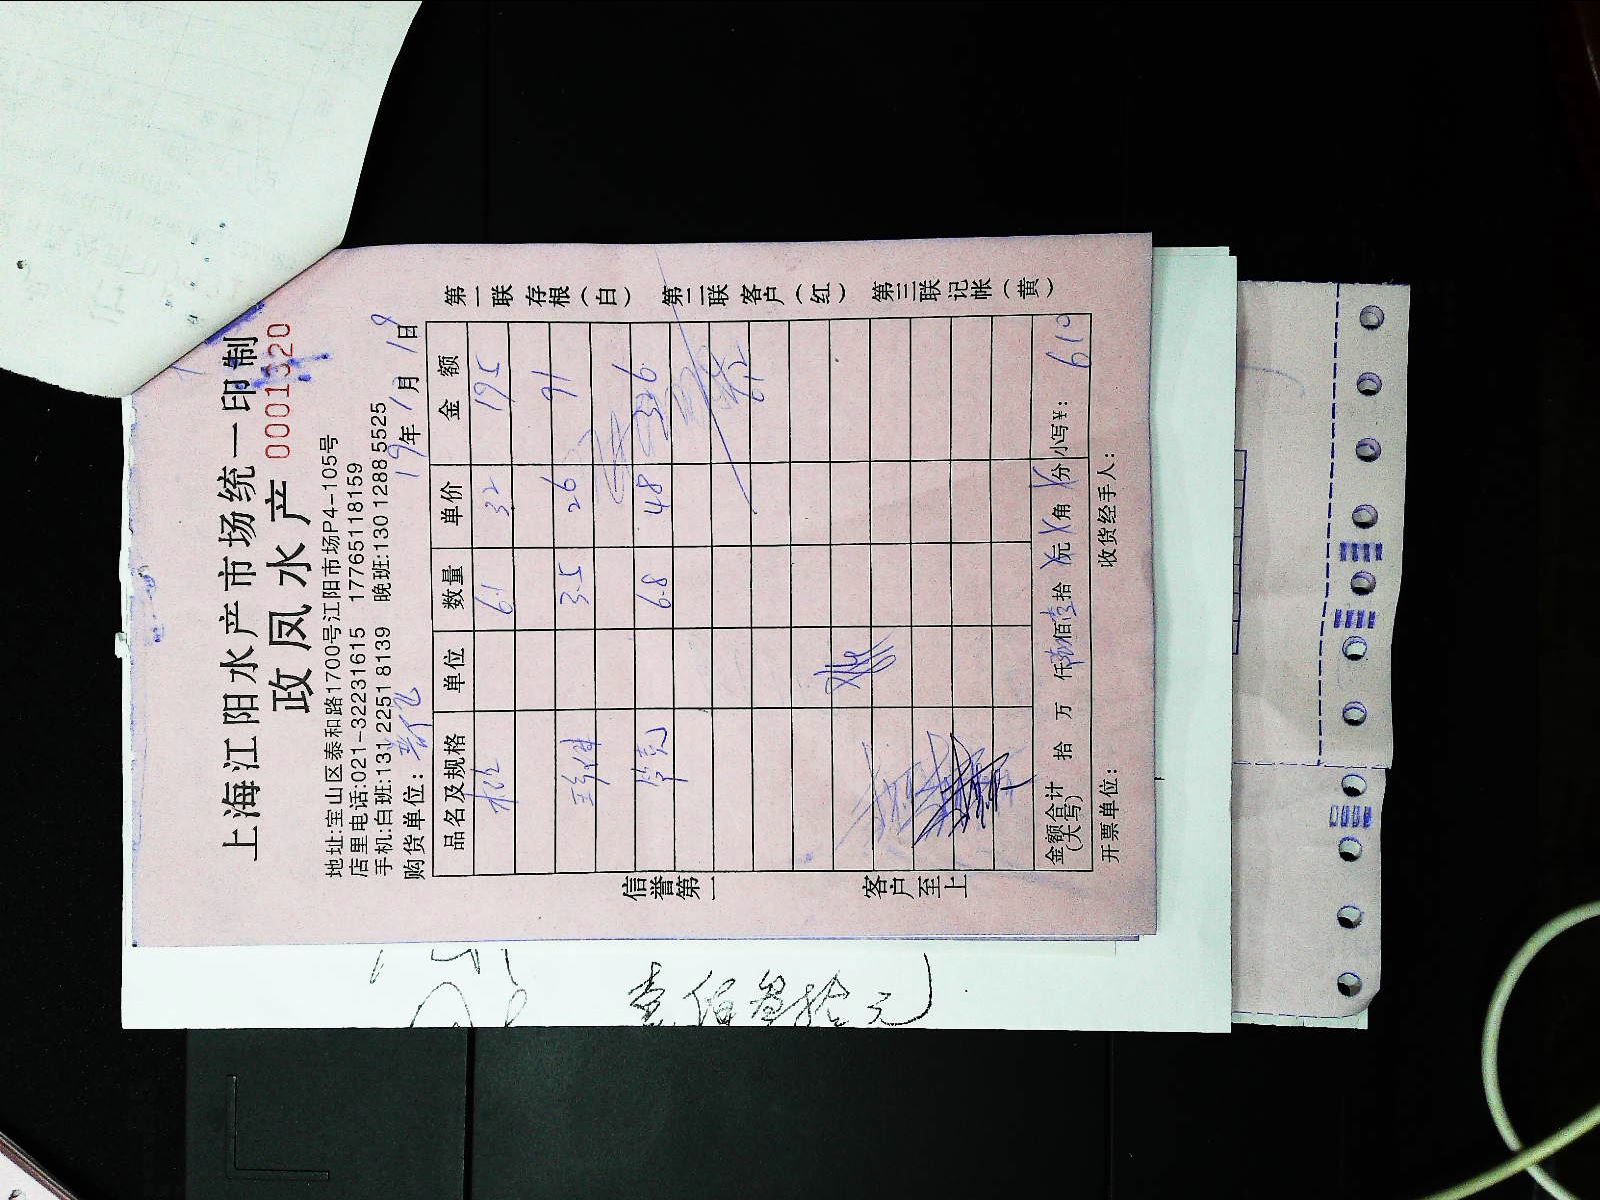 上海江阳水产市场统一印制
政凤水产 0001320
地址:宝山区泰和路1700号江阳市场P4-105号
店里电话:021-32231615 17765118159
手机:白班:131 2251 8139 晚班:130 1288 5525
购货单位: 19年1月19日
品名及规格 单位 数量 单价 金额
6.1 32 195
3.5 26 91
6.8 48 326
612
金额合计(大写) 拾 万 仟 佰壹拾 元 角 分 小写¥: 610
开票单位: 收货经手人:
信誉第一 客户至上
第一联 存根(白) 第二联 客户(红) 第三联 记帐(黄)
壹佰叁拾元